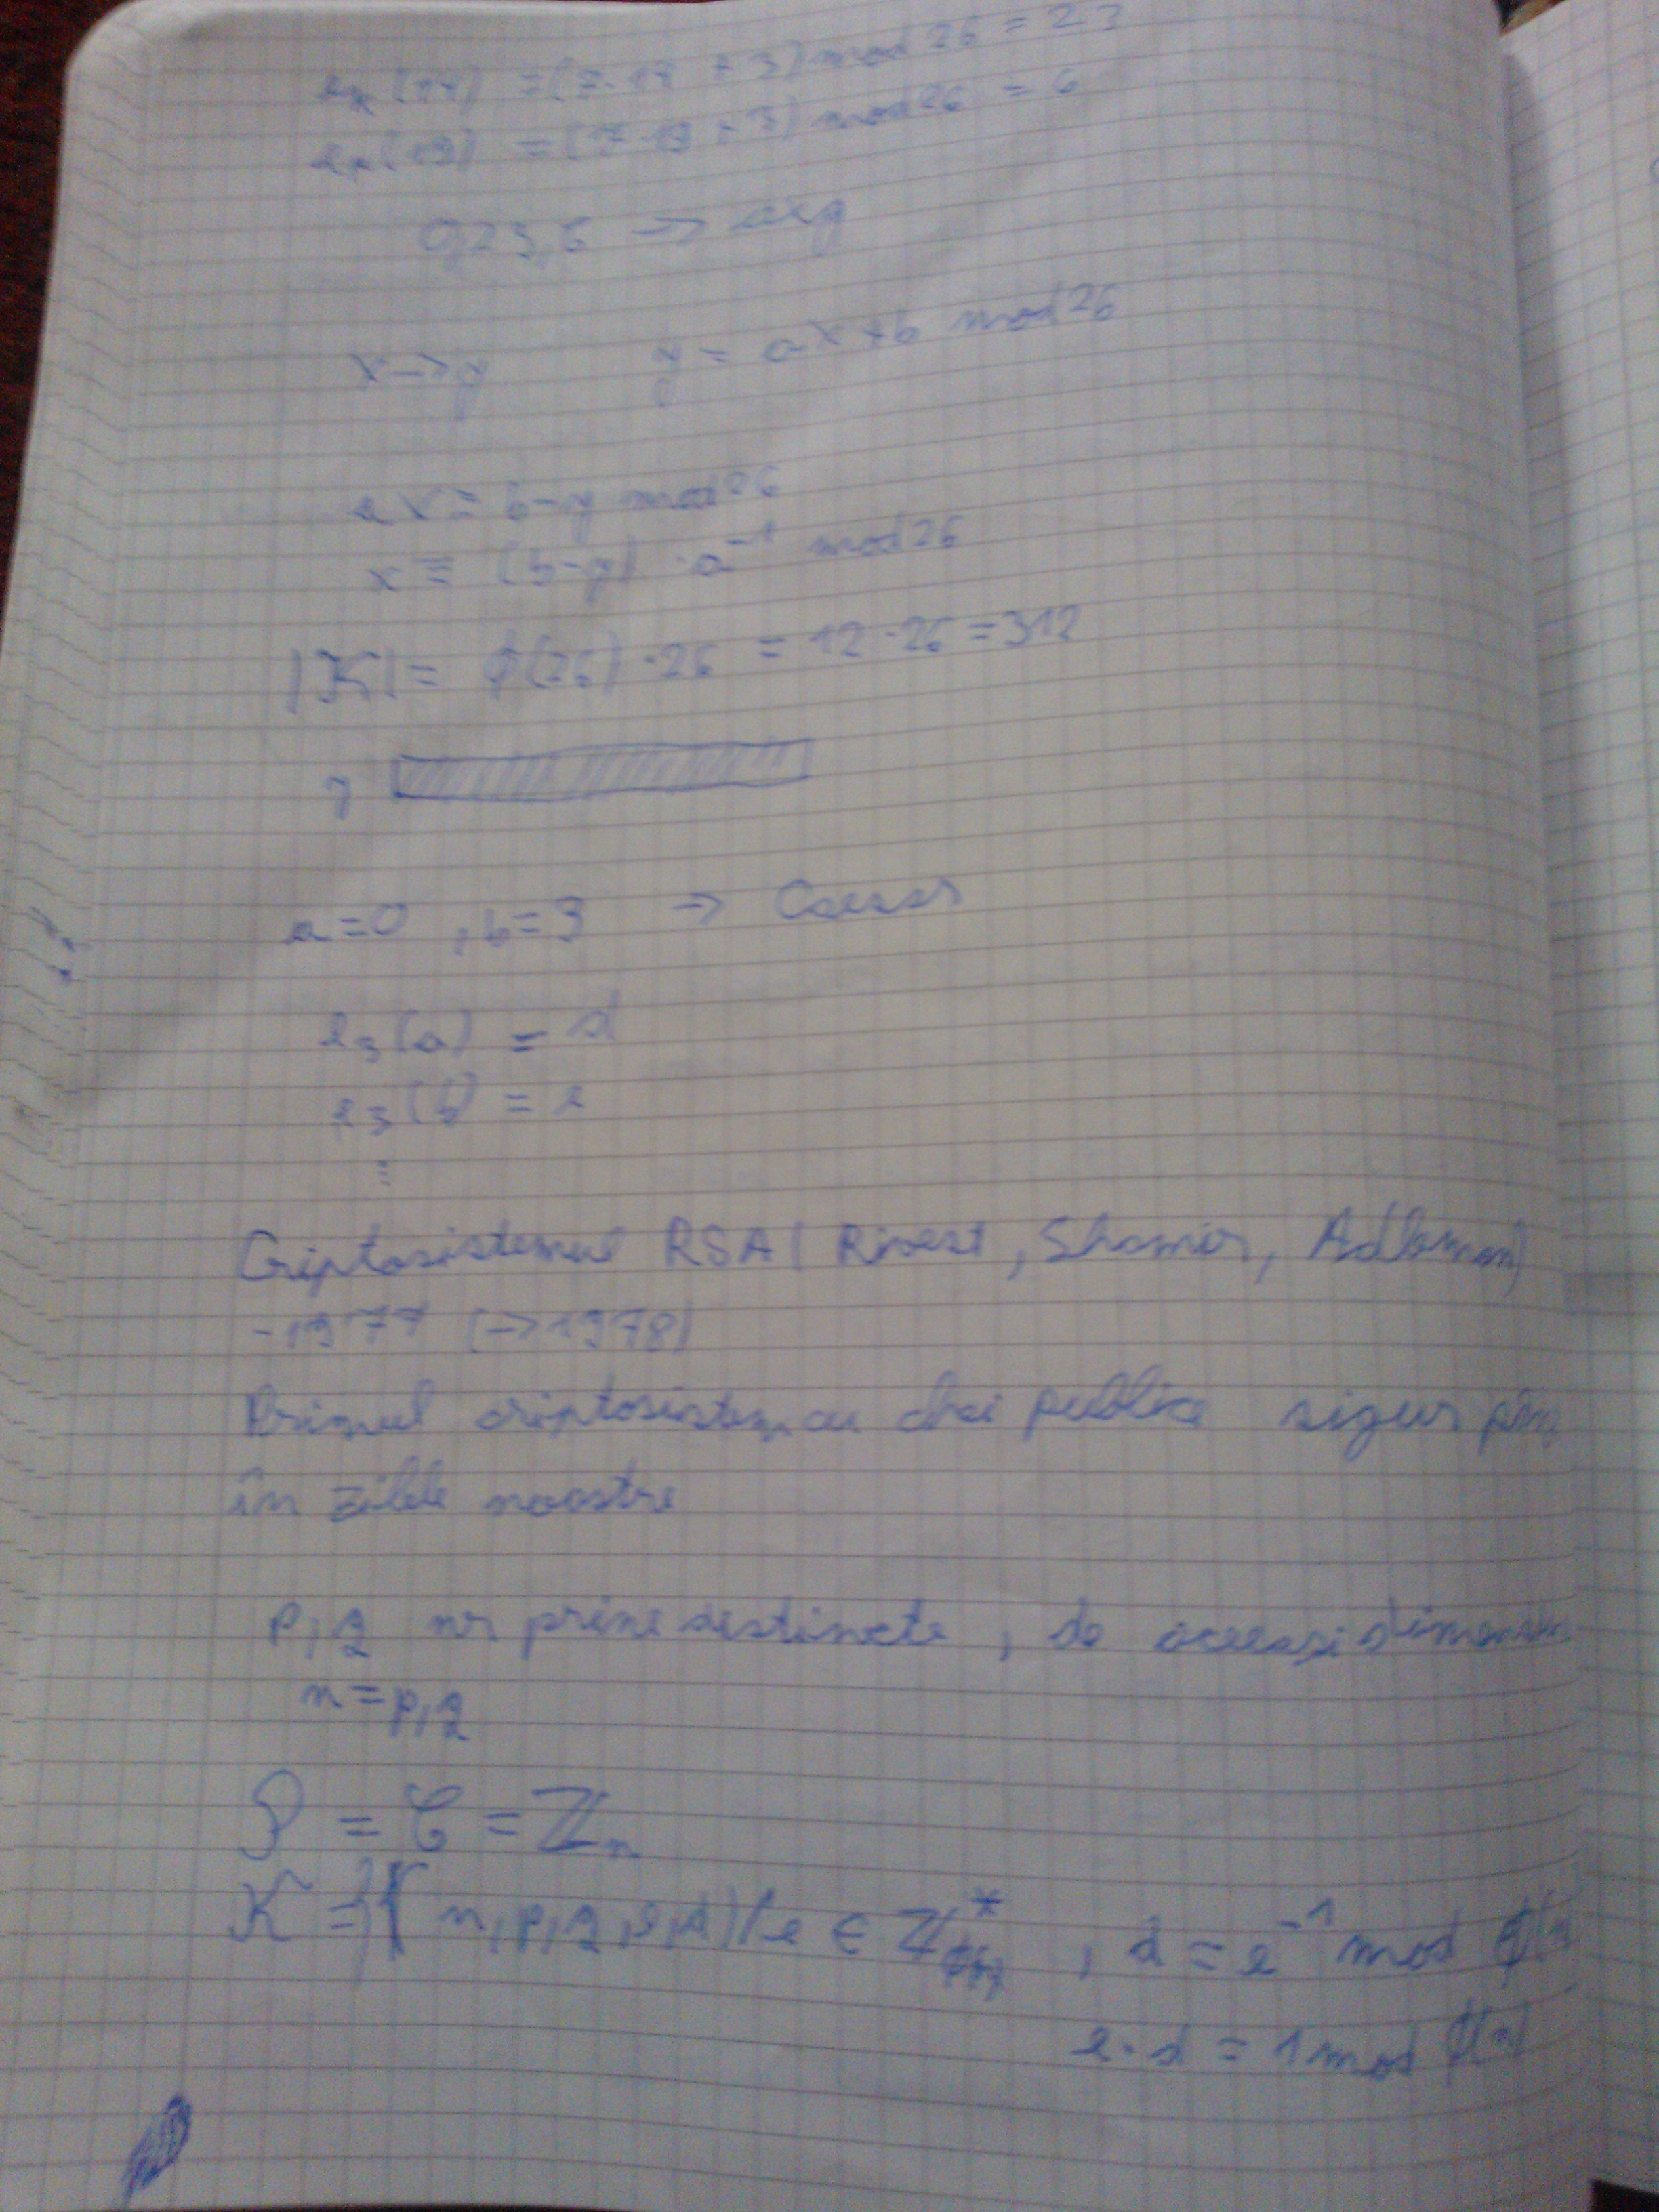 e_K(14) = (7·14 + 3) mod 26 = 23
e_K(19) = (7·19 + 3) mod 26 = 6
0,23,6 → axg
x→y y = ax+b mod 26
ax ≡ b-y mod 26
x ≡ (b-y) · a^-1 mod 26
|K| = φ(26) · 26 = 12 · 26 = 312
a=0 , b=3 → Caesar
e_3(a) = d
e_3(b) = e
⋮
Criptosistemul RSA ( Rivest , Shamir, Adleman)
-1977 (→1978)
Primul criptosistem cu chei publice sigur
în zilele noastre
p,q nr prime distincte , de aceeasi dimensiune
n = p,q
P = C = Z_n
K = {( n,p,q,e,d) / e ∈ Z*_φ(n) , d = e^-1 mod φ(n)
e·d = 1 mod φ(n)